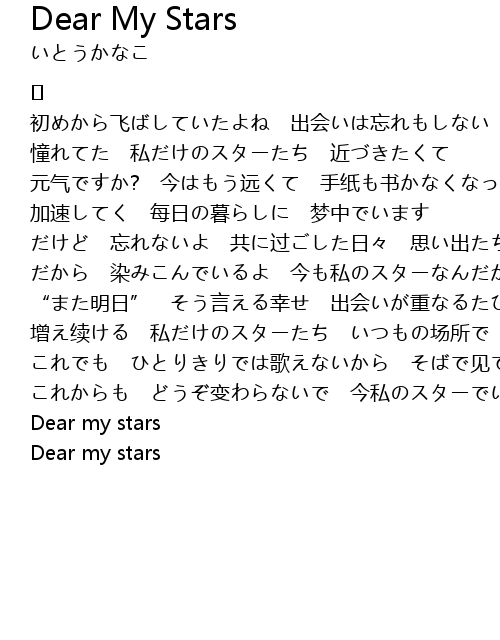 Dear My Stars
いとうかなこ
[]
初めから飞ばしていたよね　出会いは忘れもしない
憧れてた　私だけのスターたち　近づきたくて
元气ですか?　今はもう远くて　手纸も书かなくなっ
加速してく　每日の暮らしに　梦中でいます
だけど　忘れないよ　共に过ごした日々　思い出た
だから　染みこんでいるよ　今も私のスターなんだ
“また明日”　そう言える幸せ　出会いが重なるたび
增え续ける　私だけのスターたち　いつもの场所で
これでも　ひとりきりでは歌えないから　そばで见て
これからも　どうぞ变わらないで　今私のスターでい
Dear my stars
Dear my stars